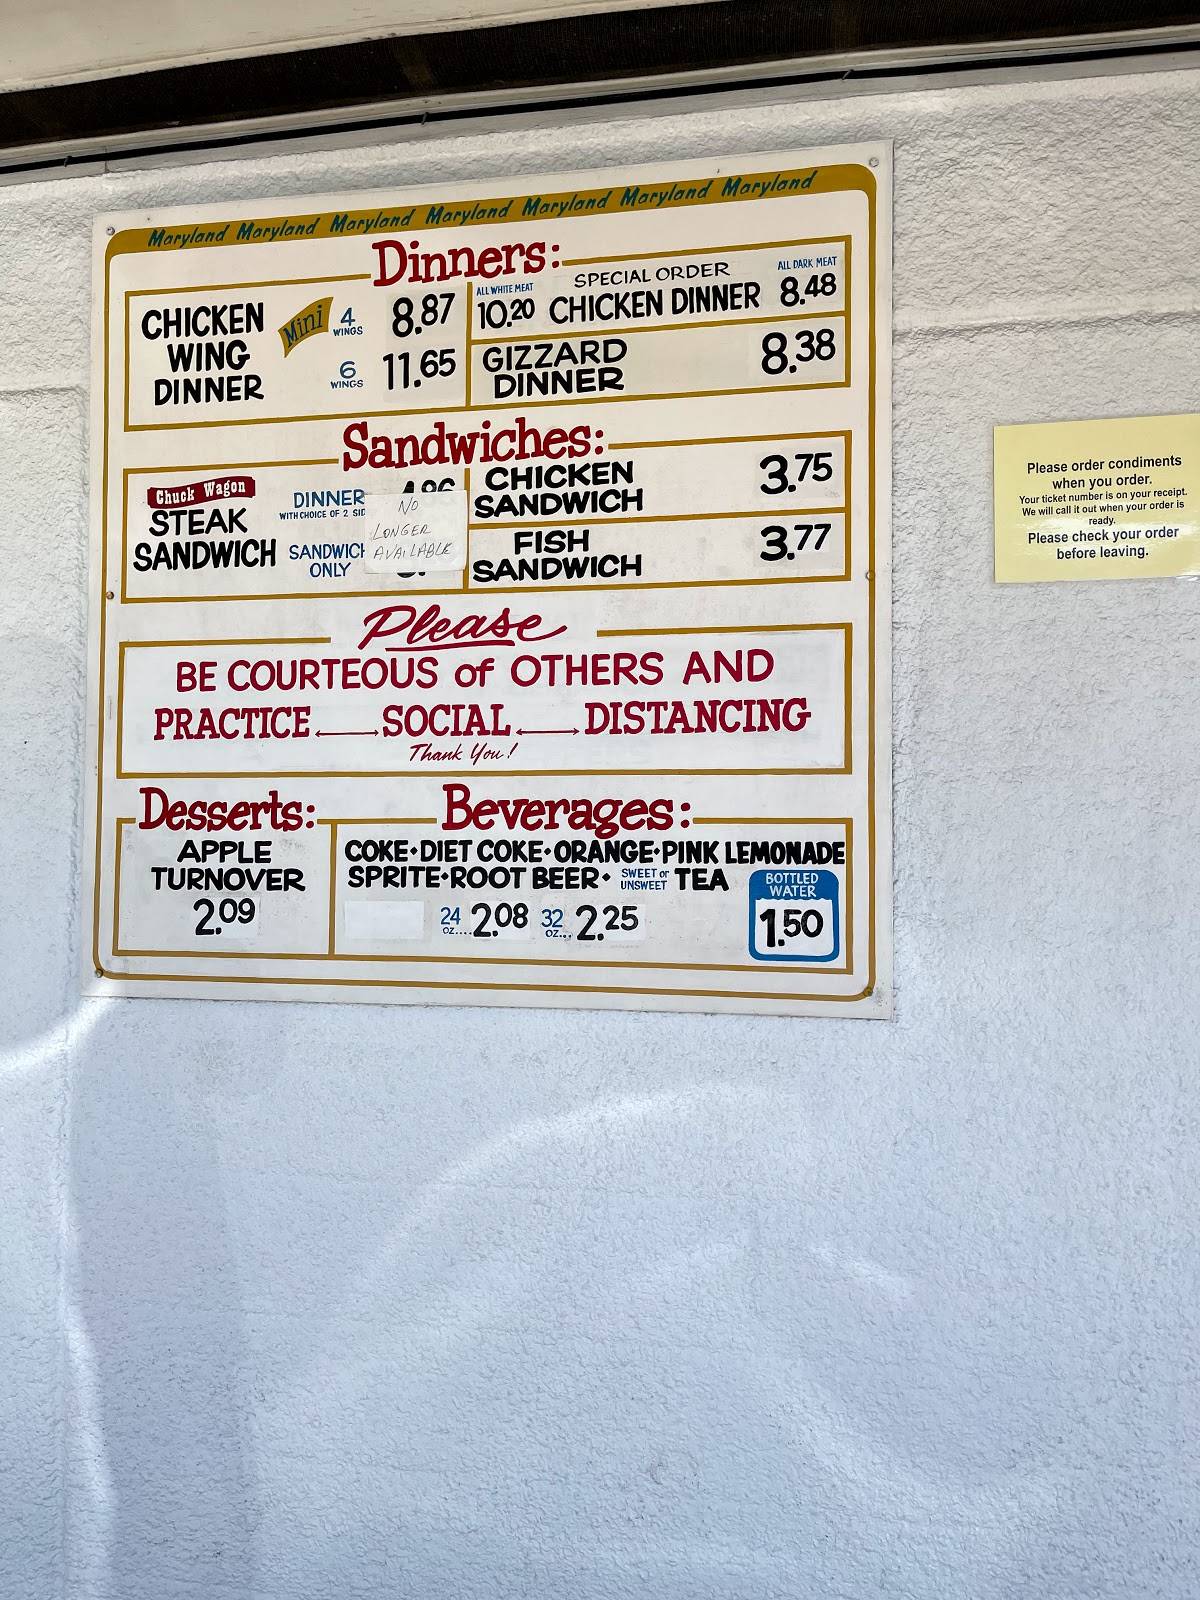 Maryland Maryland Maryland Maryland Maryland Maryland Maryland
Dinners:
CHICKEN
WING
DINNER
Mini
4
WINGS
8.87
6
WINGS
11.65
ALL WHITE MEAT
10.20
SPECIAL ORDER
CHICKEN DINNER
ALL DARK MEAT
8.48
GIZZARD
DINNER
8.38
Sandwiches:
Chuck Wagon
STEAK
SANDWICH
DINNER
WITH CHOICE OF 2
SANDWICH
ONLY
NO
LONGER
AVAILABLE
CHICKEN
SANDWICH
3.75
FISH
SANDWICH
3.77
Please
BE COURTEOUS of OTHERS AND
PRACTICE SOCIAL DISTANCING
Thank You!
Desserts:
APPLE
TURNOVER
2.09
Beverages:
COKE•DIET COKE•ORANGE•PINK LEMONADE
SPRITE•ROOT BEER• SWEET or UNSWEET TEA
24 oz.... 2.08 32 oz... 2.25
BOTTLED
WATER
1.50
Please order condiments
when you order.
Your ticket number is on your receipt.
We will call it out when your order is
ready.
Please check your order
before leaving.